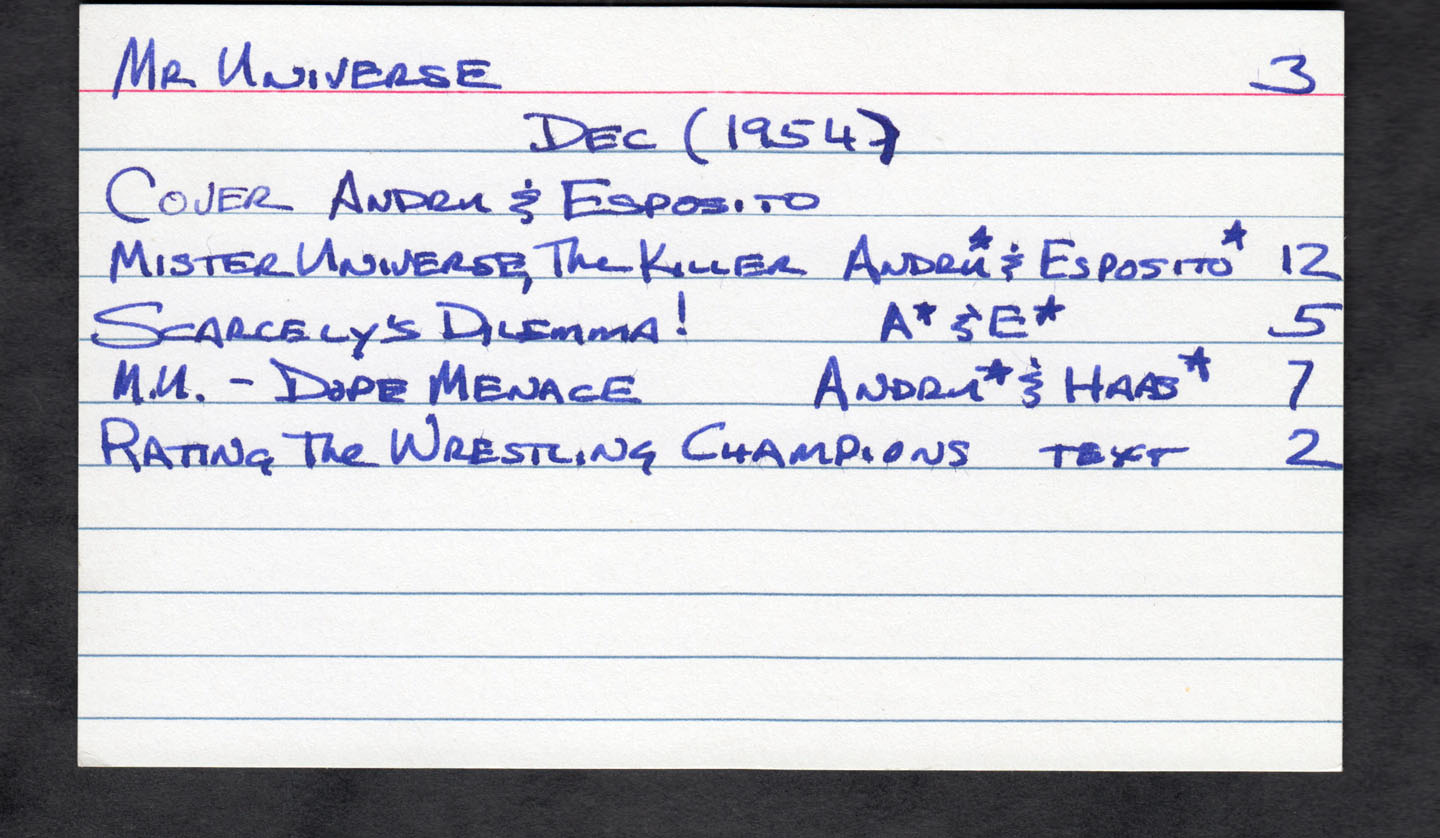 MR UNIVERSE 3
DEC (1954)
COVER ANDRU & ESPOSITO
MISTER UNIVERSE, The KILLER ANDRU* & ESPOSITO* 12
SCARCELY'S DILEMMA! A* & E* 5
M.U. - DOPE MENACE ANDRU* & HAAS* 7
RATING The WRESTLING CHAMPIONS TEXT 2